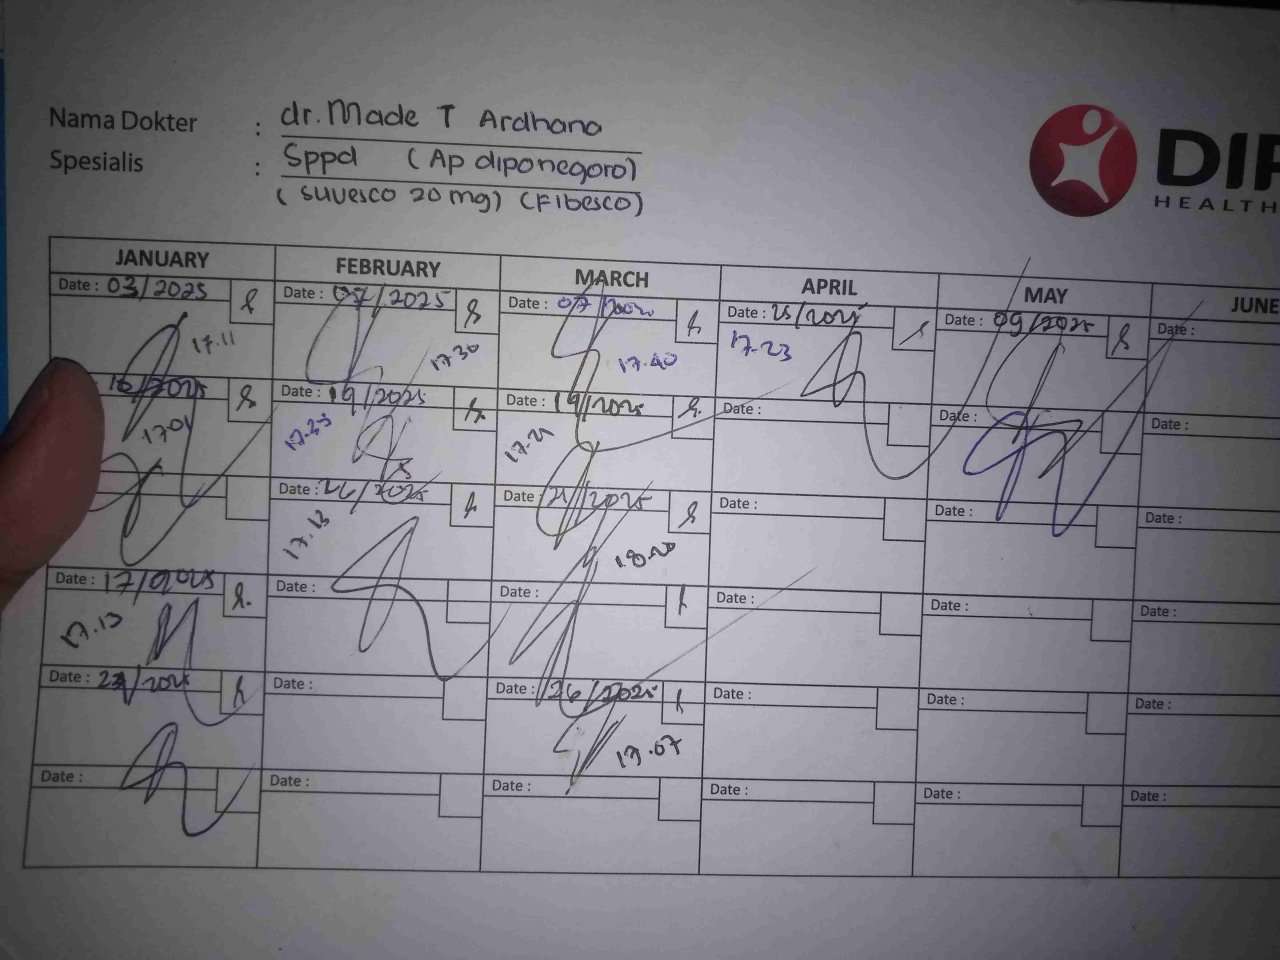 Nama Dokter : dr. Made T Ardhana
Spesialis : Sppd (Ap diponegoro)
(suvesco 20 mg) (Fibesco)
DIP
HEALTH
JANUARY FEBRUARY MARCH APRIL MAY JUNE
Date : 03/2025 Date : 07/2025 Date : 07/ Date : 25/2025 Date : 09/2025 Date :
17.11 17.30 17.40 17.23
16/2025 Date : 19/2025 Date : 19/2025 Date : Date : Date :
17.01 17.25 17.21
Date : 26/2025 Date : 21/2025 Date : Date : Date :
17.13 18.20
Date : 17/2025 Date : Date : Date : Date : Date :
17.13
Date : 22/2025 Date : Date : 26/2025 Date : Date : Date :
19.07
Date : Date : Date : Date : Date : Date :